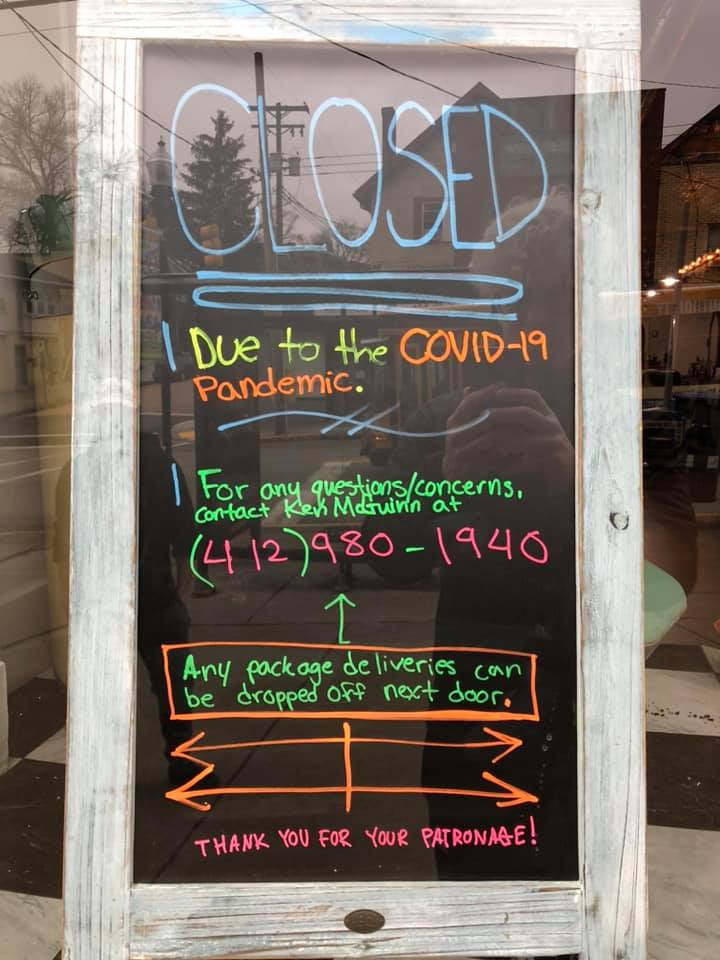 CLOSED
Due to the COVID-19
Pandemic.
For any questions/concerns,
contact Ken McGuinn at
(412)980-1940
Any package deliveries can
be dropped off next door.
THANK YOU FOR YOUR PATRONAGE!